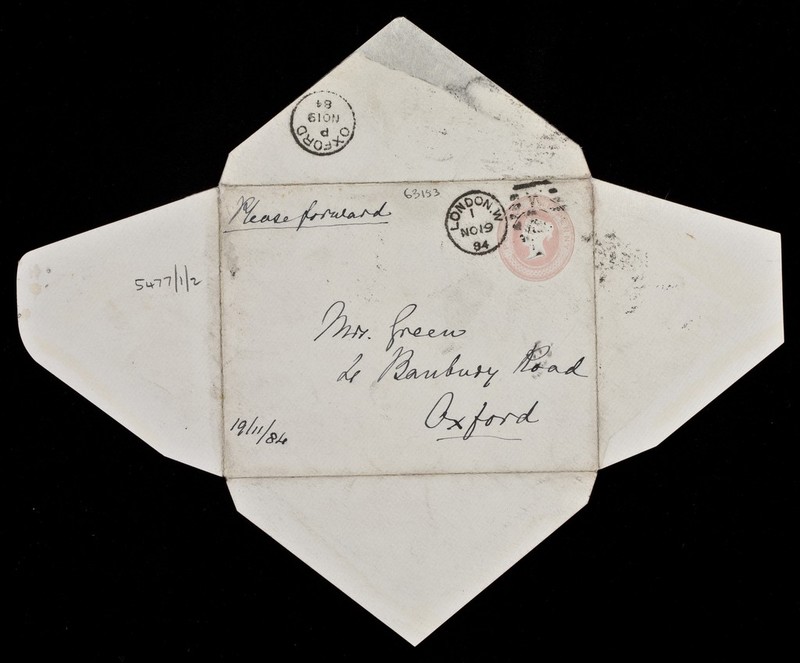 OXFORD
P
NO 19
84
63153
Please forward
LONDON.W
1
NO19
84
5477/1/2
Mrs. Green
Banbury Road
Oxford
19/11/84